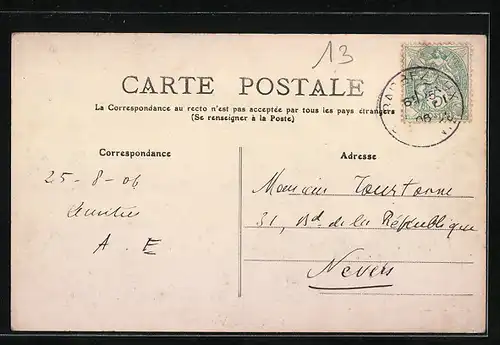 13
CARTE POSTALE
La Correspondance au recto n'est pas acceptée par tous les pays étrangers
(Se renseigner à la Poste)
Correspondance
25-8-06
Amitiés
A. E
Adresse
Monsieur
31, Bd de la République
Nevers